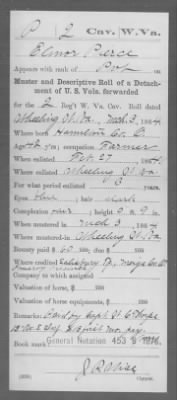 P 2 Cav. W. Va.
Elnor Pierce
Appears with rank of Pvt on
Muster and Descriptive Roll of a Detach-
ment of U. S. Vols. forwarded
for the 2 Reg't W. Va. Cav. Roll dated
Wheeling W. Va. Mch 3, 1864.
Where born Hamilton Co. O.
Age 42 y'rs; occupation Farmer
When enlisted Feb. 27, 1864.
Where enlisted Wheeling W. Va
For what period enlisted 3 years.
Eyes blue; hair dark
Complexion fair; height 5 ft. 9 in.
When mustered in Mch 3, 1864
Where mustered in Wheeling W. Va
Bounty paid $ 60 100; due $ 100
Where credited Salisbury Tp., Meigs Co. O.
Company to which assigned
Valuation of horse, $ 100
Valuation of horse equipments, $ 100
Remarks: Paid by Capt.
13 1 mo. pay.
Book mark: General Notation 453 B 1876.
Copyist.